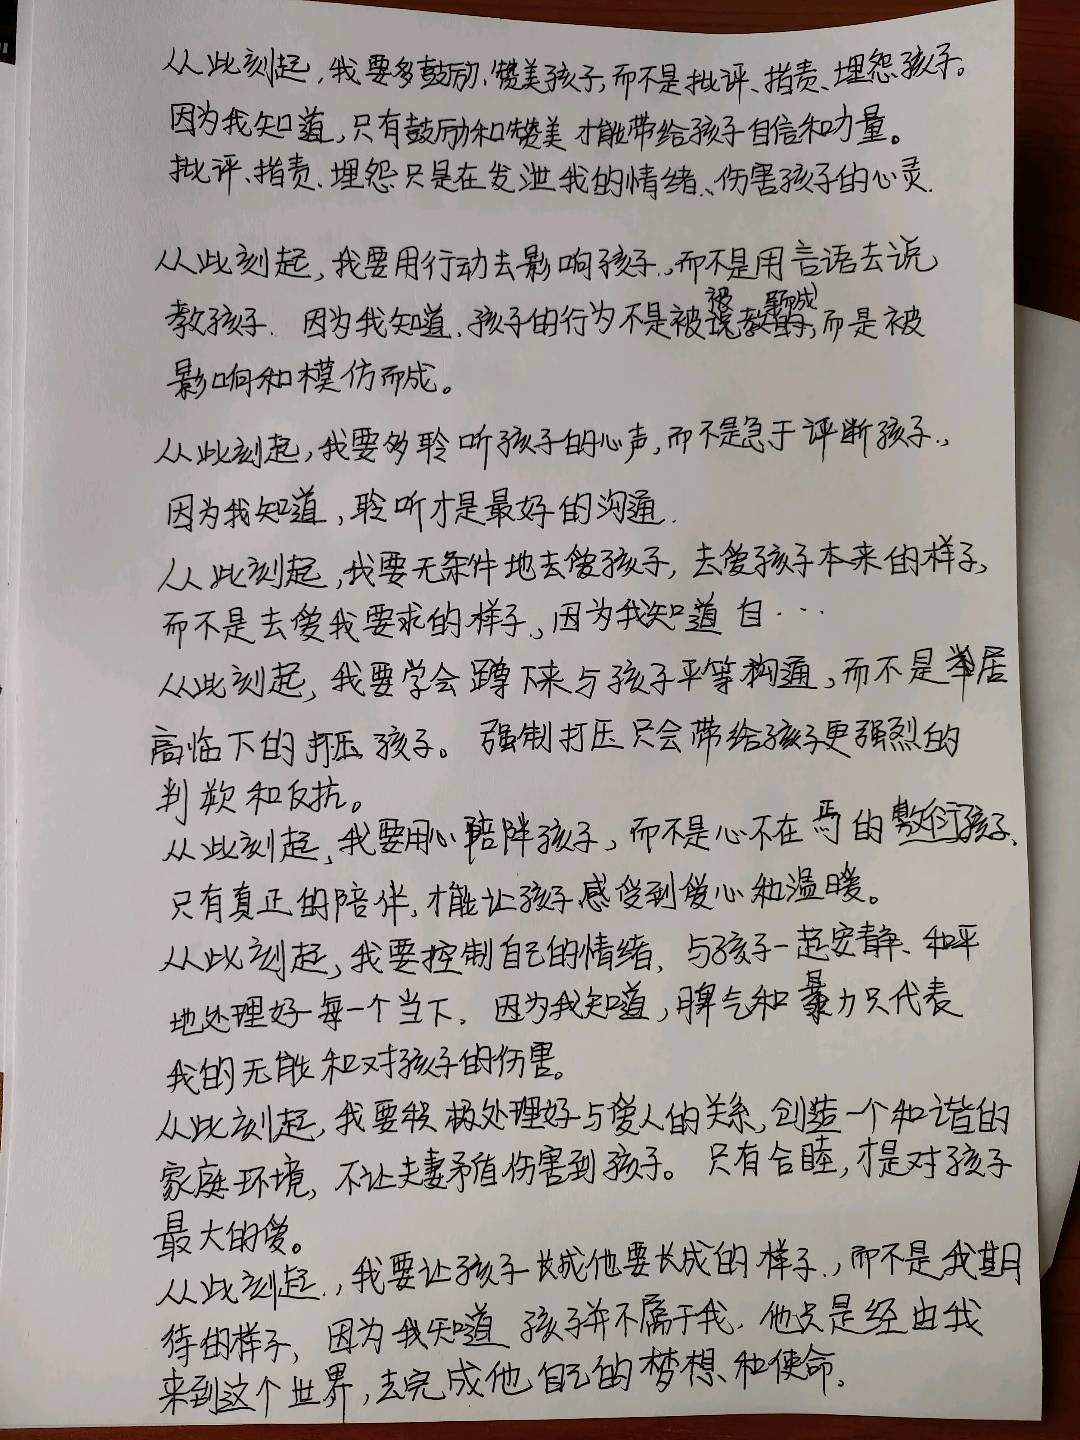 从此刻起，我要多鼓励、赞美孩子，而不是批评、指责、埋怨孩子。
因为我知道，只有鼓励和赞美才能带给孩子自信和力量。
批评、指责、埋怨只是在发泄我的情绪、伤害孩子的心灵.
从此刻起，我要用行动去影响孩子，而不是用言语去说
教孩子. 因为我知道、孩子的行为不是被说教而成，而是被
影响和模仿而成。
从此刻起，我要多聆听孩子的心声，而不是急于评断孩子.，
因为我知道，聆听才是最好的沟通.
从此刻起，我要无条件地去爱孩子，去爱孩子本来的样子，
而不是去爱我要求的样子、因为我知道 自···
从此刻起，我要学会蹲下来与孩子平等沟通，而不是居
高临下的打压孩子。强制打压只会带给孩子更强烈的
判欺和反抗。
从此刻起，我要用心陪伴孩子，而不是心不在焉的敷衍孩子、
只有真正的陪伴，才能让孩子感受到爱心和温暖。
从此刻起，我要控制自己的情绪，与孩子一起安静、和平
地处理好每一个当下. 因为我知道，脾气和暴力只代表
我的无能和对孩子的伤害。
从此刻起，我要积极处理好与爱人的关系，创造一个和谐的
家庭环境，不让夫妻矛盾伤害到孩子。只有合睦，才是对孩子
最大的爱。
从此刻起.，我要让孩子长成他要长成的样子.，而不是我期
待的样子，因为我知道 孩子并不属于我. 他只是经由我
来到这个世界，去完成他自己的梦想和使命.